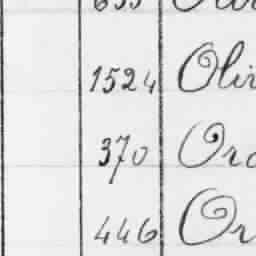 1524 Oli
370 Ord
446 Or